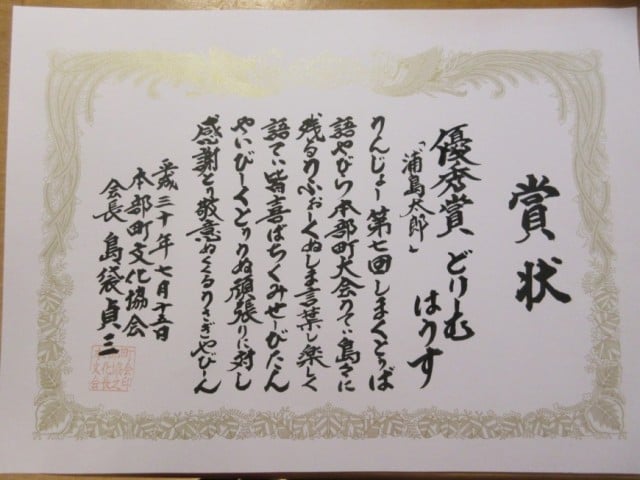 賞状
優秀賞 どりーむ
はうす
「浦島太郎」
りんじょー第七回しまくとぅば
語やびり本部町大会りてぃ島々に
残るりふぉーくぬしま言葉し楽しく
語てぃ皆喜ばちくみせーびたん
やいびーくとぅりぬ頑張りに対し
感謝とぅ敬意ぬくくるうさぎやびーん
平成三十年七月十五日
本部町文化協会
会長 島袋貞三